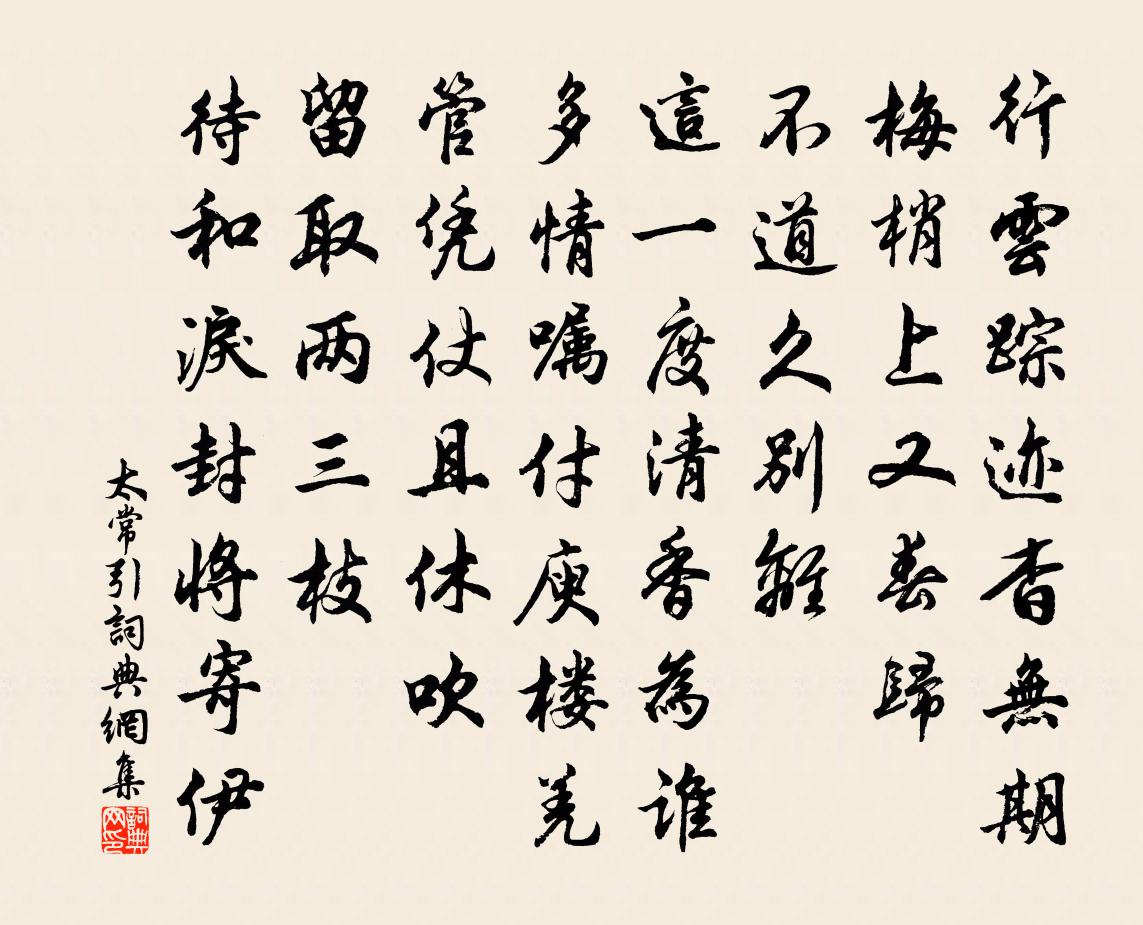 行雲踪迹杳無期
梅梢上又春歸
不道久別離
這一度清香為誰
多情嘱付庾楼羌
管凭仗且休吹
留取两三枝
待和淚封將寄伊
太常引詞典網集
詞典网印